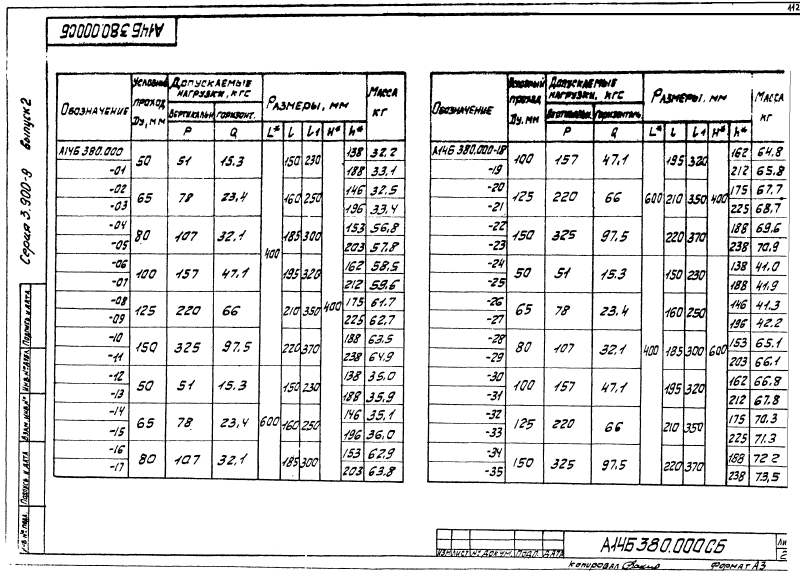 112
А14Б 380.000СБ
Серия 3.900-9 выпуск 2
Обозначение | Условный проход Ду, мм | Допускаемые нагрузки, кгс | Размеры, мм | Масса кг
Вертикальн P | горизонт. Q | L* | l | l1 | H* | h*
А14Б 380.000 | 50 | 51 | 15.3 | 400 | 150 | 230 | 400 | 138 | 32.2
-01 | 188 | 33.1
-02 | 65 | 78 | 23,4 | 160 | 250 | 146 | 32.5
-03 | 196 | 33,4
-04 | 80 | 107 | 32.1 | 185 | 300 | 153 | 56,8
-05 | 203 | 57.8
-06 | 100 | 157 | 47.1 | 195 | 320 | 162 | 58.5
-07 | 212 | 59.6
-08 | 125 | 220 | 66 | 210 | 350 | 175 | 61.7
-09 | 225 | 62.7
-10 | 150 | 325 | 97.5 | 220 | 370 | 188 | 63.5
-11 | 238 | 64.9
-12 | 50 | 51 | 15.3 | 600 | 150 | 230 | 138 | 35.0
-13 | 188 | 35.9
-14 | 65 | 78 | 23,4 | 160 | 250 | 146 | 35.1
-15 | 196 | 36,0
-16 | 80 | 107 | 32.1 | 185 | 300 | 153 | 62.9
-17 | 203 | 63.8
Обозначение | Условный проход Ду, мм | Допускаемые нагрузки, кгс | Размеры, мм | Масса кг
Вертикальн. P | горизонталь Q | L* | l | l1 | H* | h*
А14Б 380.000-18 | 100 | 157 | 47.1 | 600 | 195 | 320 | 400 | 162 | 64,8
-19 | 212 | 65.8
-20 | 125 | 220 | 66 | 210 | 350 | 175 | 67.7
-21 | 225 | 68,7
-22 | 150 | 325 | 97.5 | 220 | 370 | 188 | 69.6
-23 | 238 | 70,9
-24 | 50 | 51 | 15.3 | 400 | 150 | 230 | 600 | 138 | 41.0
-25 | 188 | 41.9
-26 | 65 | 78 | 23.4 | 160 | 250 | 146 | 41.3
-27 | 196 | 42.2
-28 | 80 | 107 | 32.1 | 185 | 300 | 153 | 65.1
-29 | 203 | 66.1
-30 | 100 | 157 | 47.1 | 195 | 320 | 162 | 66.8
-31 | 212 | 67.8
-32 | 125 | 220 | 66 | 210 | 350 | 175 | 70.3
-33 | 225 | 71.3
-34 | 150 | 325 | 97.5 | 220 | 370 | 188 | 72.2
-35 | 238 | 73,5
Инв.№ подл. | Подпись и дата | Взам.инв.№ | Инв.№ дубл. | Подпись и дата
Изм | Лист | № докум. | Подп. | Дата
А14Б 380.000СБ
Ли
2
Копировал
Формат А3